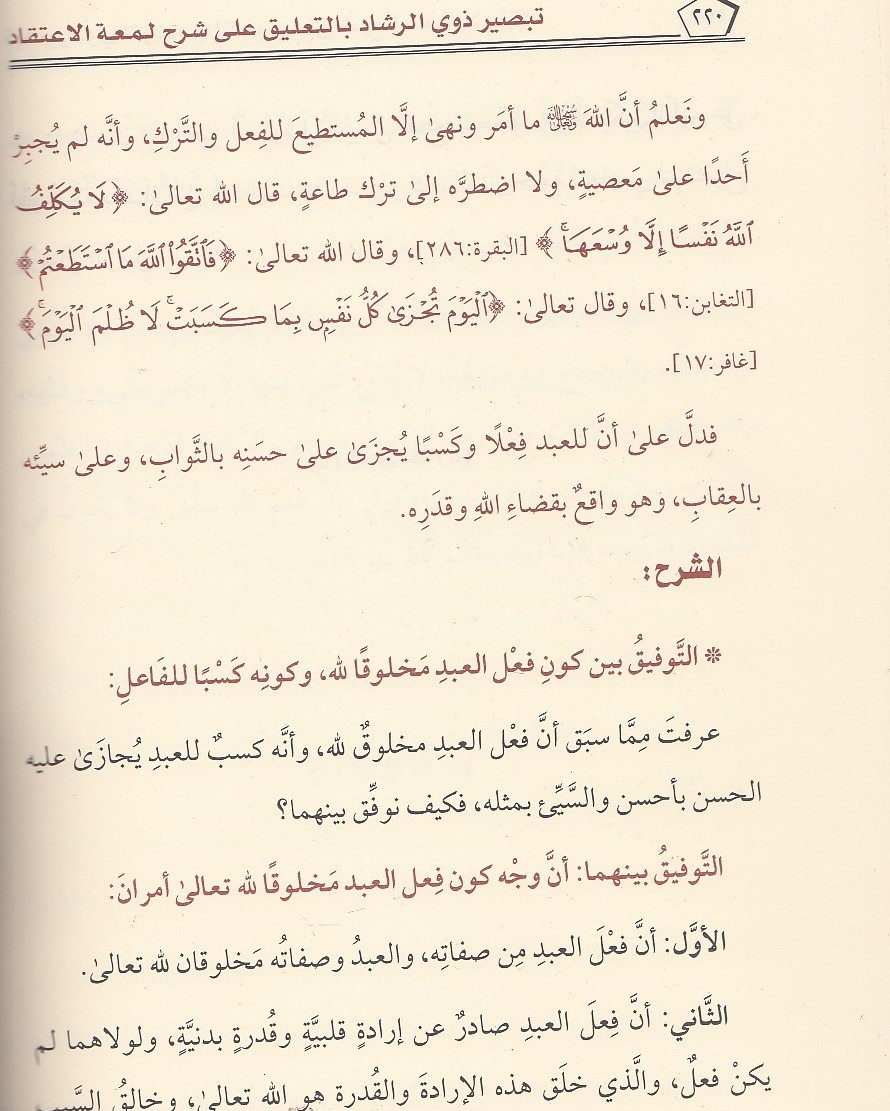 ٢٢٠
تبصير ذوي الرشاد بالتعليق على شرح لمعة الاعتقاد
ونَعلمُ أنَّ اللهَ ﷾ ما أمَر ونهىٰ إلَّا المُستطيعَ للفِعل والتَّرْكِ، وأنَّه لم يُجبِرْ
أَحدًا علىٰ مَعصيةٍ، ولا اضطرَّه إلىٰ ترْك طاعةٍ، قال الله تعالىٰ: ﴿لَا يُكَلِّفُ
ٱللَّهُ نَفۡسًا إِلَّا وُسۡعَهَاۚ﴾ [البقرة:٢٨٦]، وقال الله تعالىٰ: ﴿فَٱتَّقُواْ ٱللَّهَ مَا ٱسۡتَطَعۡتُمۡ﴾
[التغابن:١٦]، وقال تعالىٰ: ﴿ٱلۡيَوۡمَ تُجۡزَىٰ كُلُّ نَفۡسِۭ بِمَا كَسَبَتۡۚ لَا ظُلۡمَ ٱلۡيَوۡمَۚ﴾
[غافر:١٧].
فدلَّ علىٰ أنَّ للعبد فِعْلًا وكَسْبًا يُجزَىٰ علىٰ حسَنِه بالثَّوابِ، وعلىٰ سيِّئه
بالعِقابِ، وهو واقعٌ بقضاءِ اللهِ وقدَرِه.
الشرح:
* التَّوفيقُ بين كونِ فعْل العبدِ مَخلوقًا لله، وكونِه كَسْبًا للفَاعلِ:
عرفتَ مِمَّا سبَق أنَّ فعْل العبدِ مخلوقٌ لله، وأنَّه كسبٌ للعبدِ يُجازَىٰ عليه
الحسن بأحسن والسَّيِّئ بمثله، فكيف نوفِّق بينهما؟
التَّوفيقُ بينهما: أنَّ وجْه كون فِعل العبد مَخلوقًا لله تعالىٰ أمرانَ:
الأوَّل: أنَّ فعْلَ العبدِ مِن صفاتِه، والعبدُ وصفاتُه مَخلوقان لله تعالىٰ.
الثَّاني: أنَّ فِعلَ العبدِ صادرٌ عن إرادةٍ قلبيَّةٍ وقُدرةٍ بدنيَّةٍ، ولولاهما لم
يكنْ فعلٌ، والَّذي خلَق هذه الإرادةَ والقُدرة هو الله تعالىٰ، وخالقُ السَّبب